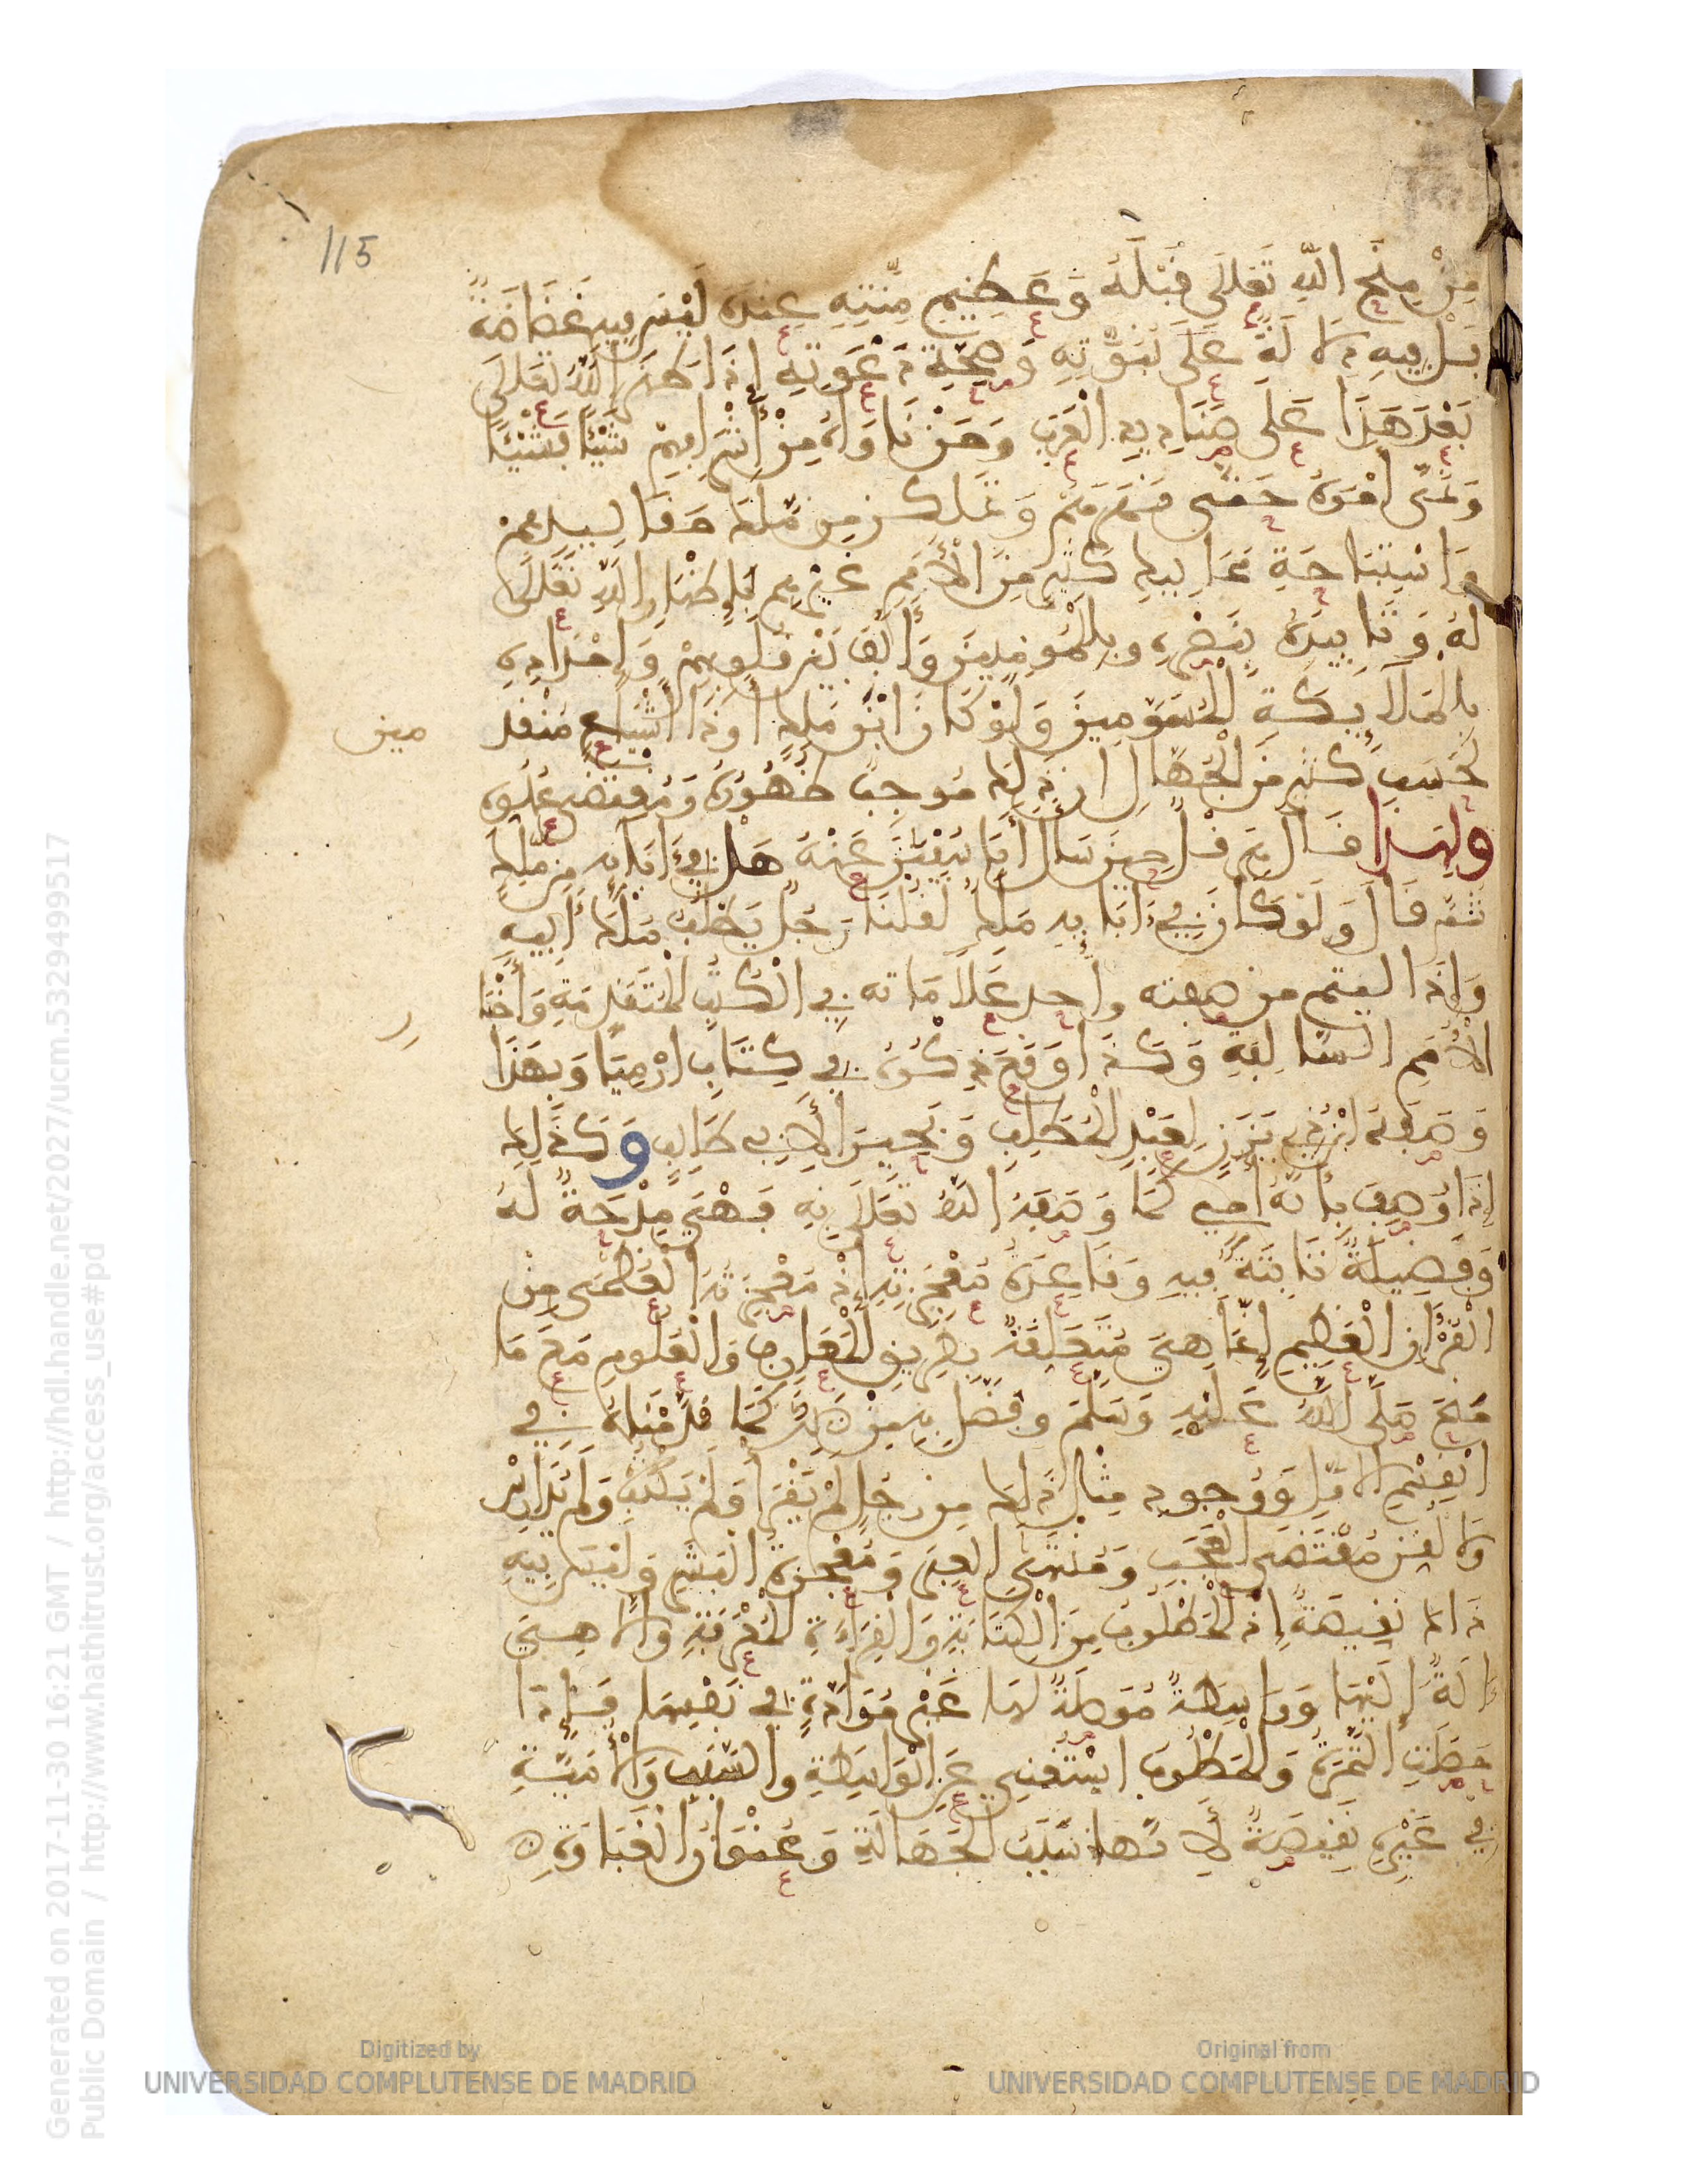 115
مِنْ مِنَحِ اللهِ تَعَلَى قِبَلَهُ وَعَظِيمِ مِنَّتِهِ عِنْدَهُ لَيْسَ فِيهِ غَضَاضَةٌ
بَلْ فِيهِ دَلَالَةٌ عَلَى نُبُوَّتِهِ وَصِحَّةِ دَعْوَتِهِ إِذْ أَظْهَرَهُ اللهُ تَعَلَى
بَعْدَ هَذَا عَلَى صَنَادِيدِ الْعَرَبِ وَمَنْ نَاوَاهُ مِنْ أَشْرَافِهِمْ شَيْئًا فَشَيْئًا
وَنَمَّى أَمْرَهُ حَتَّى قَهَرَهُمْ وَتَمَكَّنَ مِنْ مُلْكِ مَقَالِيدِهِمْ
وَاسْتِبَاحَةِ مَمَالِيكِ كَثِيرٍ مِنَ الْأُمَمِ غَيْرِهِمْ بِإِظْهَارِ اللهِ تَعَلَى
لَهُ وَتَأْيِيدِهِ بِنَصْرِهِ وَبِالْمُومِنِينَ وَأَلَّفَ بَيْنَ قُلُوبِهِمْ وَإِمْدَادِهِ
بِالْمَلَائِكَةِ الْمُسَوِّمِينَ وَلَوْ كَانَ ابْنَ مَلِكٍ أَوْ ذَا أَشْيَاعٍ مُتَقَدِّ
مين
لَحَسِبَ كَثِيرٌ مِنَ الْجُهَّالِ أَنَّ ذَلِكَ مُوجِبُ ظُهُورِهِ وَمُقْتَضِي عُلُوِّهِ
ولهذا قَالَ هِرَقْلُ حِينَ سَأَلَ أَبَا سُفْيَنَ عَنْهُ هَلْ فِي ءَابَائِهِ مِنْ مَلِكٍ
ثُمَّ قَالَ وَلَوْ كَانَ فِي ءَابَائِهِ مَلِكٌ لَقُلْنَا رَجُلٌ يَطْلُبُ مُلْكَ أَبِيهِ
وَإِذَا اليتم من صفته واحد عَلَامَاته فِي الْكُتُبِ الْمُتَقَدِّمَةِ وَأَخْبَا
ر
الْأُمَمِ السَّالِفَةِ وَكَذَا وَقَعَ ذِكْرُهُ فِي كِتَابِ ارْمِيَا وَبِهَذَا
وَصَفَهُ ابْنُ ذِي يَزَنٍ لِعَبْدِ الْمُطَّلِبِ وَبَحِيرَا لِأَبِي طَالِبٍ وَكَذَلِكَ
إِذَا وُصِفَ بِأَنَّهُ أُمِّي كَمَا وَصَفَهُ اللهُ تَعَلَى بِهِ فَهْيَ مِدْحَةٌ لَهُ
وَفَضِيلَةٌ ثَابِتَةٌ فِيهِ وَقَاعِدَةُ مُعْجِزَتِهِ إِذْ مُعْجِزَتُهُ الْعُظْمَى مِنَ
الْقُرْآنِ الْعَظِيمِ إِنَّمَا هِيَ مُتَعَلِّقَةٌ بِطَرِيقِ الْمَعَارِفِ وَالْعُلُومِ مَعَ مَا
مُنِحَ صَلَّى اللهُ عَلَيْهِ وَسَلَّمَ وَفُضِّلَ بِهِ مِنْ ذَلِكَ كَمَا قَدَّمْنَاهُ فِي
الْقِسْمِ الْأَوَّلِ وَوُجُودُ مِثْلِ ذَلِكَ مِنْ رَجُلٍ لَمْ يَقْرَأْ وَلَمْ يَكْتُبْ وَلَمْ يُدَارِسْ
وَلَا لُقِّنَ مُقْتَضَى الْعَجَبِ وَمُنْتَهَى الْعِبَرِ وَمُعْجِزَةُ الْبَشَرِ وَلَيْسَ فِيهِ
ذَلِكَ نَقِيصَةٌ إِذِ الْمَطْلُوبُ مِنَ الْكِتَابَةِ وَالْقِرَاءَةِ الْمَعْرِفَةُ وَإِنَّمَا هِيَ
ءَالَةٌ إِلَيْهَا وَوَاسِطَةٌ مُوَصِّلَةٌ لَهَا غَيْرُ مُرَادَةٍ فِي نَفْسِهَا فَإِذَا
حَصَلَتِ الثَّمَرَةُ وَالْمَطْلُوبُ اسْتُغْنِيَ عَنِ الْوَاسِطَةِ وَالسَّبَبِ وَالْأُمِّيَّةُ
فِي غَيْرِهِ نَقِيصَةٌ لِأَنَّهَا سَبَبُ الْجَهَالَةِ وَعُنْوَانُ الْغَبَاوَةِ
Generated on 2017-11-30 16:21 GMT / http://hdl.handle.net/2027/ucm.5329499517
Public Domain / http://www.hathitrust.org/access_use#pd
Digitized by
UNIVERSIDAD COMPLUTENSE DE MADRID
Original from
UNIVERSIDAD COMPLUTENSE DE MADRID